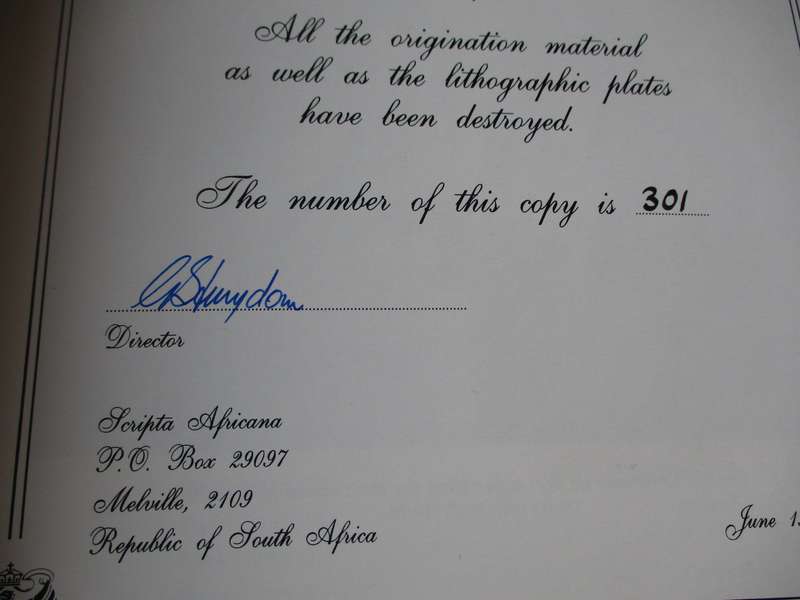 All the origination material
as well as the lithographic plates
have been destroyed.
The number of this copy is 301
Director
Scripta Africana
P.O. Box 29097
Melville, 2109
Republic of South Africa
June